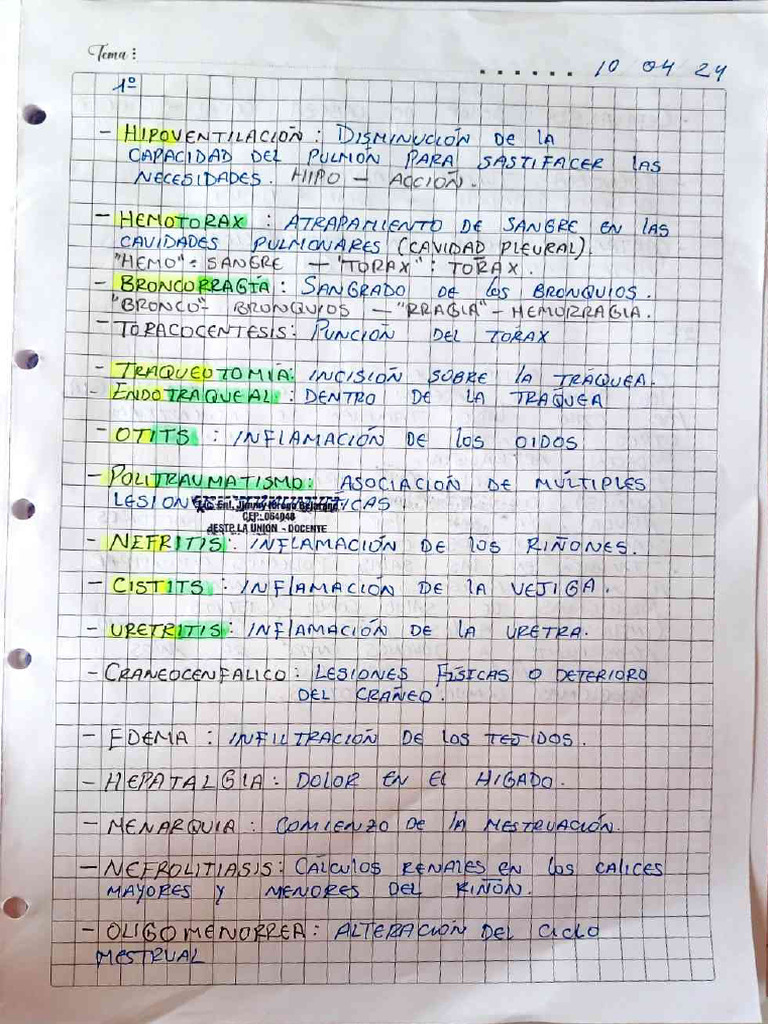 Tema:
10 04 24
1º
- HIPOVENTILACIÓN : DISMINUCIÓN DE LA
CAPACIDAD DEL PULMÓN PARA SASTIFACER LAS
NECESIDADES. HIPO - ACCIÓN.
- HEMOTORAX : ATRAPAMIENTO DE SANGRE EN LAS
CAVIDADES PULMONARES (CAVIDAD PLEURAL).
"HEMO": SANGRE - "TORAX": TORAX.
- BRONCORRAGIA: SANGRADO DE los BRONQUIOS.
"BRONCO"- BRONQUIOS - "RRAGIA" - HEMORRAGIA.
- TORACOCENTESIS: PUNCIÓN DEL TORAX
- TRAQUEOTOMIA: INCISIÓN SOBRE la TRÁQUEA.
- ENDOTRAQUEAL: DENTRO DE LA TRAQUEA
- OTITS : INFLAMACIÓN DE los OIDOS
- POLITRAUMATISMO: ASOCIACIÓN DE MÚLTIPLES
LESION ICAS.
CEP: 064948
IESTP. LA UNION - DOCENTE
- NEFRITIS: INFLAMACIÓN DE los RIÑONES.
- CISTITS : INFlAMACIÓN DE la VEJIGA.
- URETRITIS: INFlAMACIÓN DE la URETRA.
- CRANEOCENFALICO: LESIONES FÍSICAS O DETERIORO
DEL CRANEO.
- EDEMA : INFILTRACIÓN DE LOS TEJIDOS.
- HEPATALGIA: DOLOR EN El HIGADO.
- MENARQUIA: COMIENZO DE la MESTRUACIÓN.
- NEFROLITIASIS: CÁLCULOS RENALES EN los CALICES
MAYORES Y MENORES DEL RIÑÓN.
- OLIGOMENORREA: ALTERACIÓN DEL CIClO
MESTRUAL